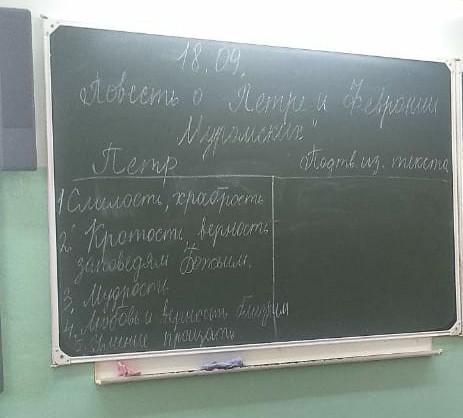 18.09.
Повесть о Петре и Февронии
Муромских"
Петр Подтв. из. текста
1 Смелость, храбрость
2. Кротость верность
заповедям Божьим.
3. Мудрость
4. Любовь и верность близким
5. Умение прощать